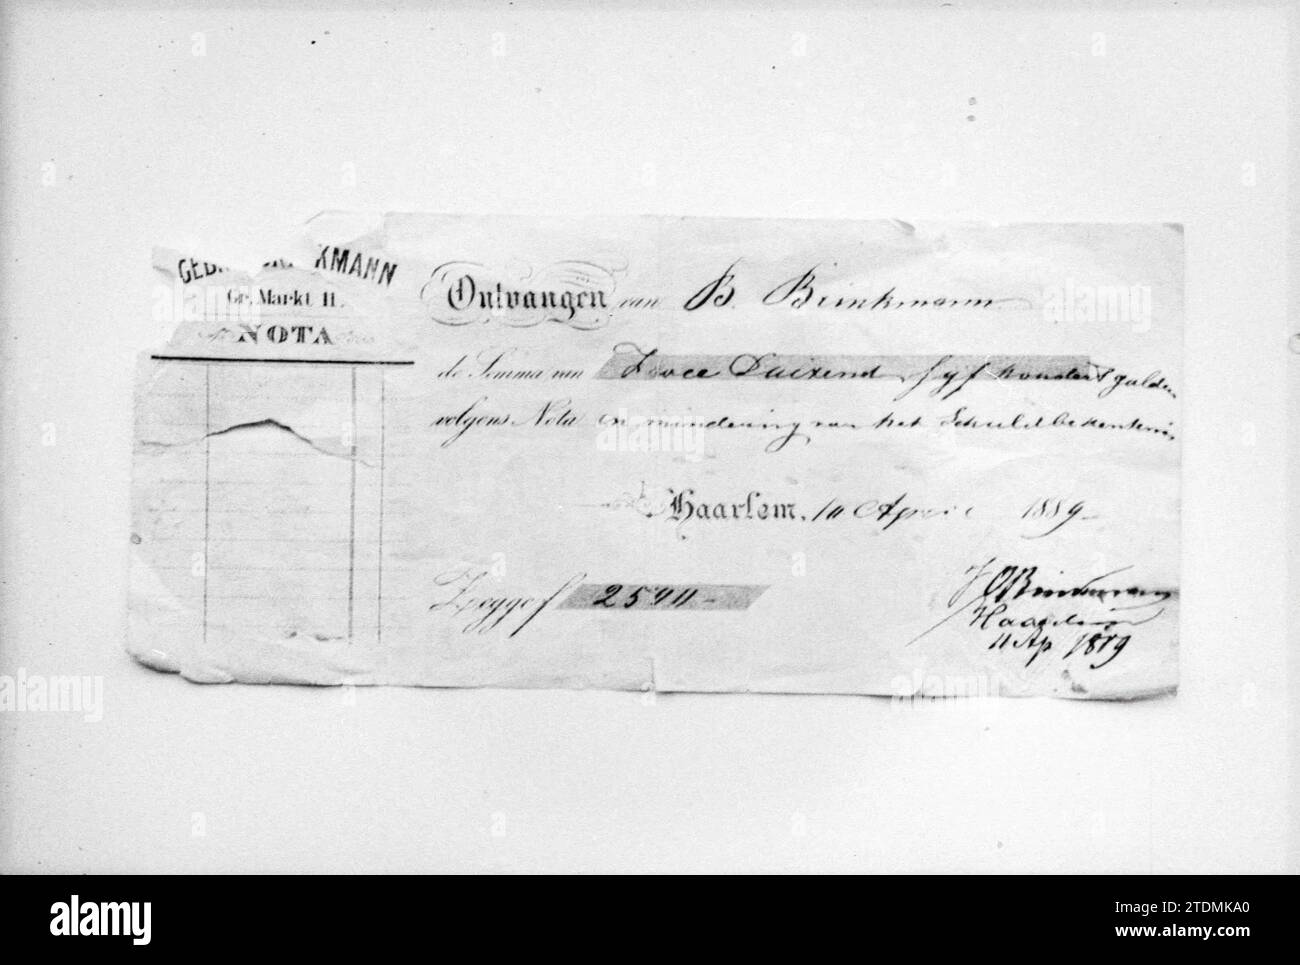 GEBR. BRINKMANN
Gr. Markt 11.
NOTA
Ontvangen van B. Brinkmann
de Somma van Twee Duizend Vyf hondert gulden
volgens Nota in mindering van het Schuldbekentenis
Haarlem, 10 April 1889
Zegge f 2500-
Brinkmann
Haarlem
11 Ap 1889
alamy
Image ID: 2TDMKA0
www.alamy.com